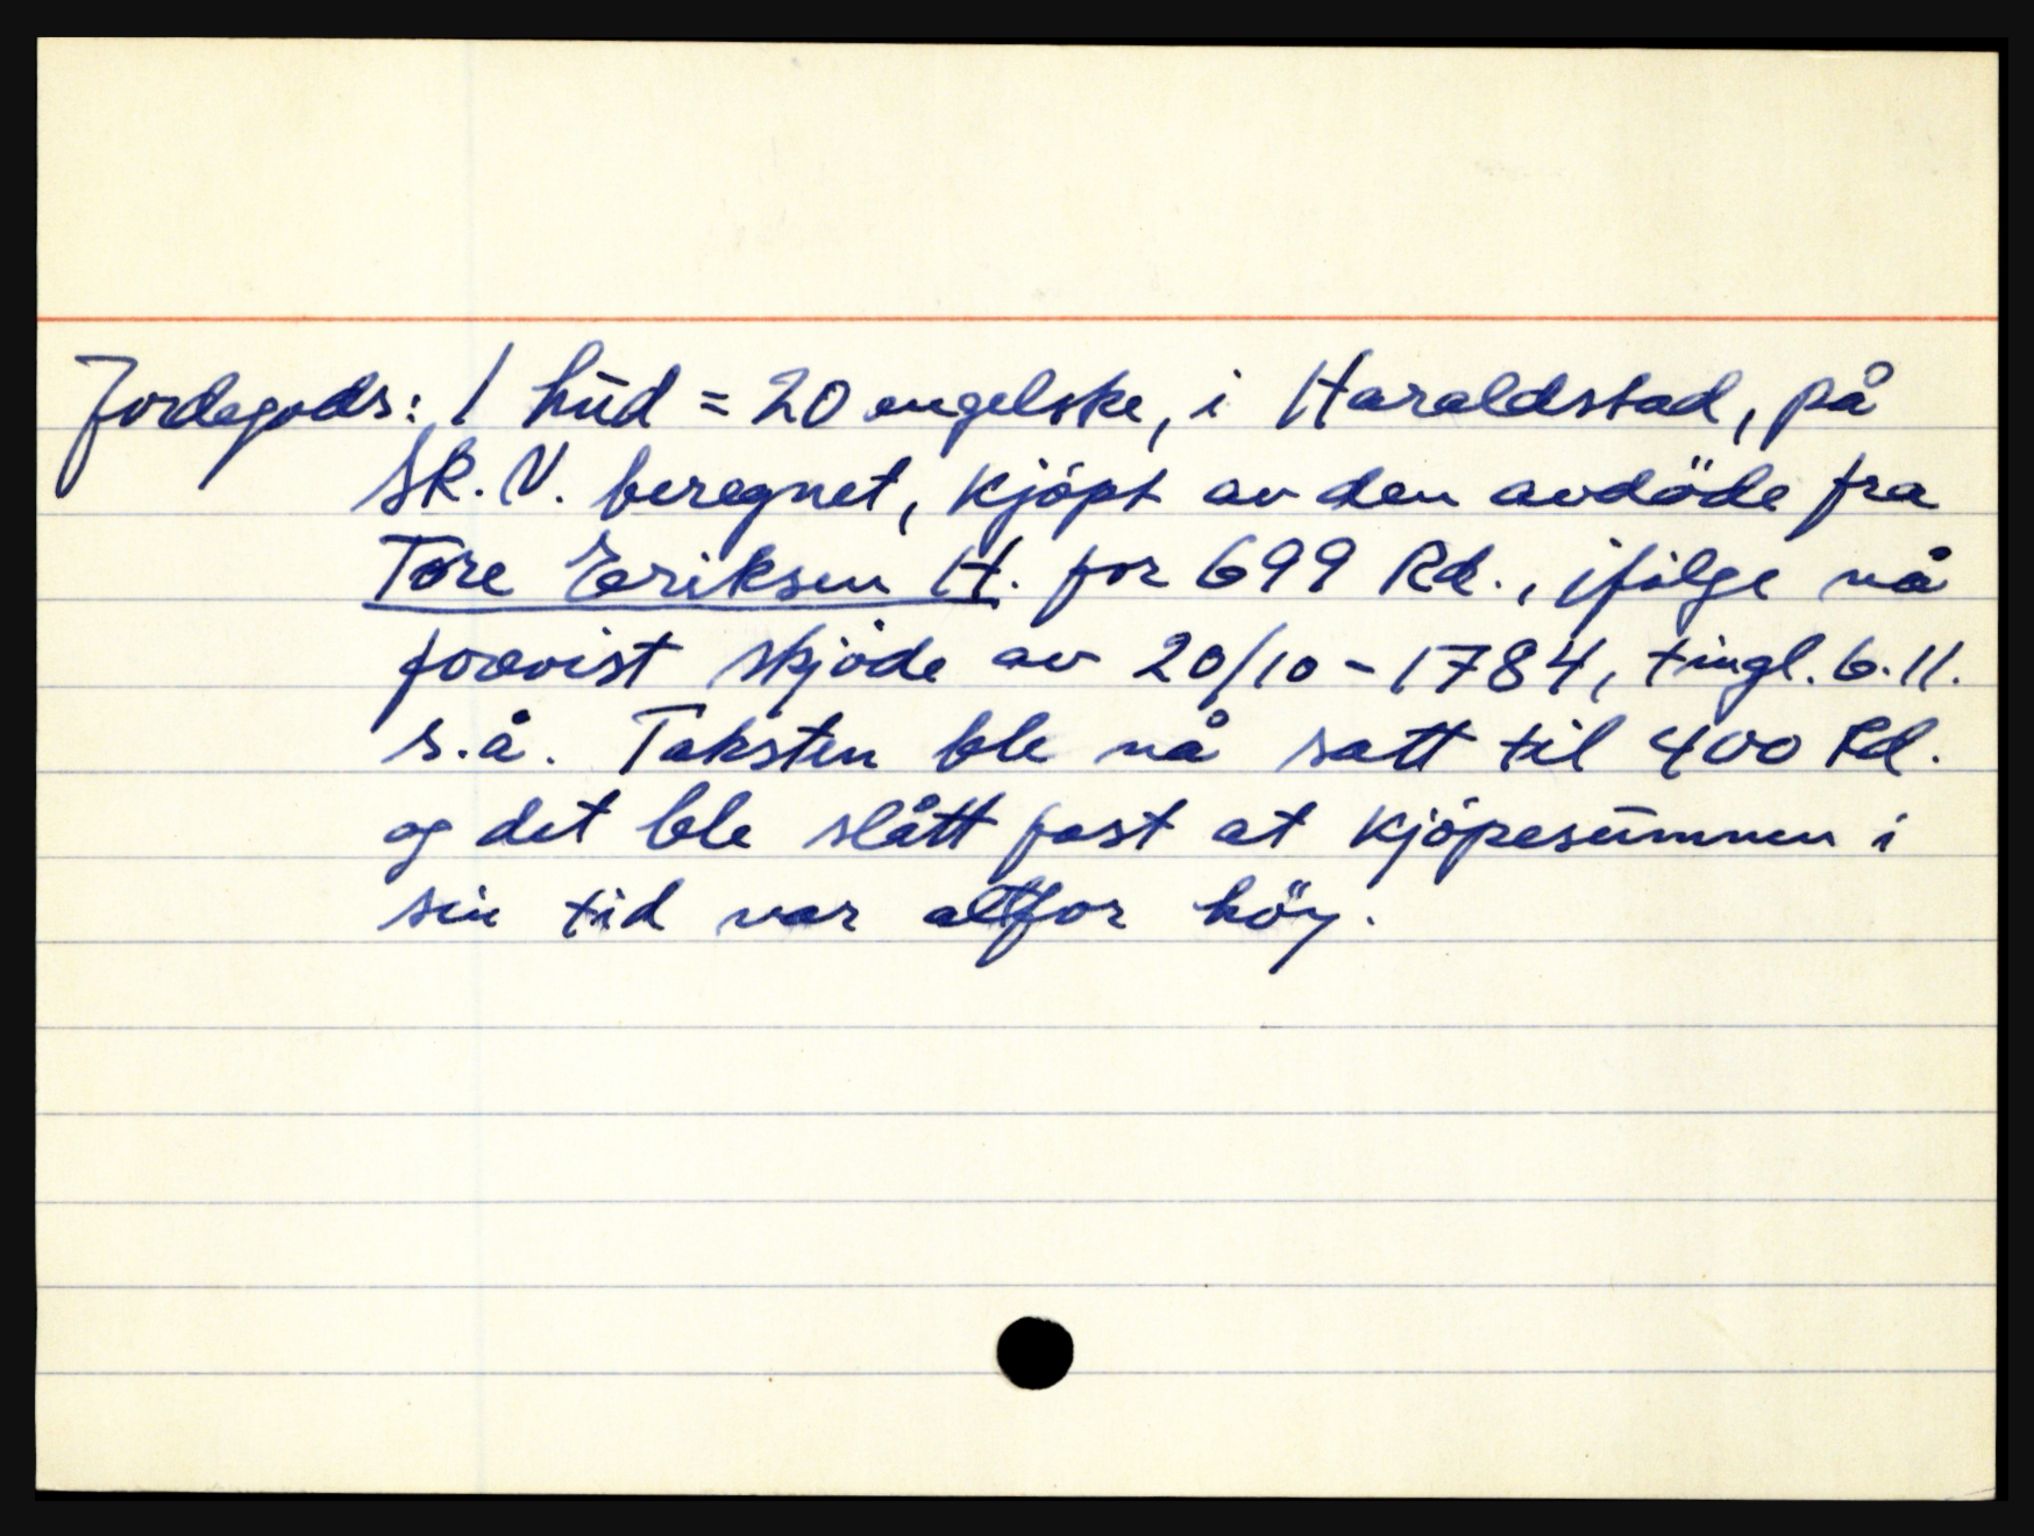 Jordegods: 1 hud = 20 engelske, i Haraldstad, på
Sk. V. beregnet, kjöpt av den avdöde fra
Tore Eriksen H. for 699 Rd., ifölge nå
forevist skjöde av 20/10 - 1784, tingl. 6.11.
s.å. Taksten ble nå satt til 400 Rd.
og det ble slått fast at kjöpesummen i
sin tid var altfor höy.